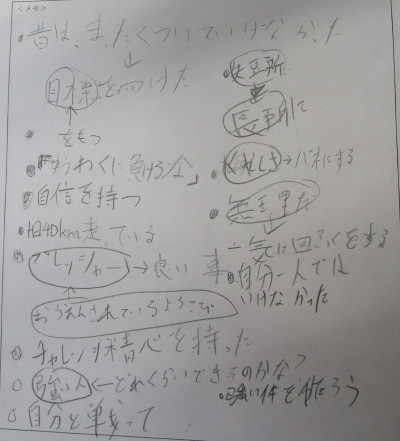 <メモ>
・昔は、まったくついていけなかった
↓
目標をつけた
・をもつ
・「ゆうわくに負けるな」
・自信を持つ
・1日40km走っている
・プレッシャー→良い事
おうえんされているよろこび
・チャレンジ精心を持った
○強い人←どれくらいできるのかな?
○自分と単って
・短所
↓
長所に
くやしさ→バネにする
無名選手
↓
一気に回ふくをする
・自分一人では
いけなかった
・強い体を作ろう